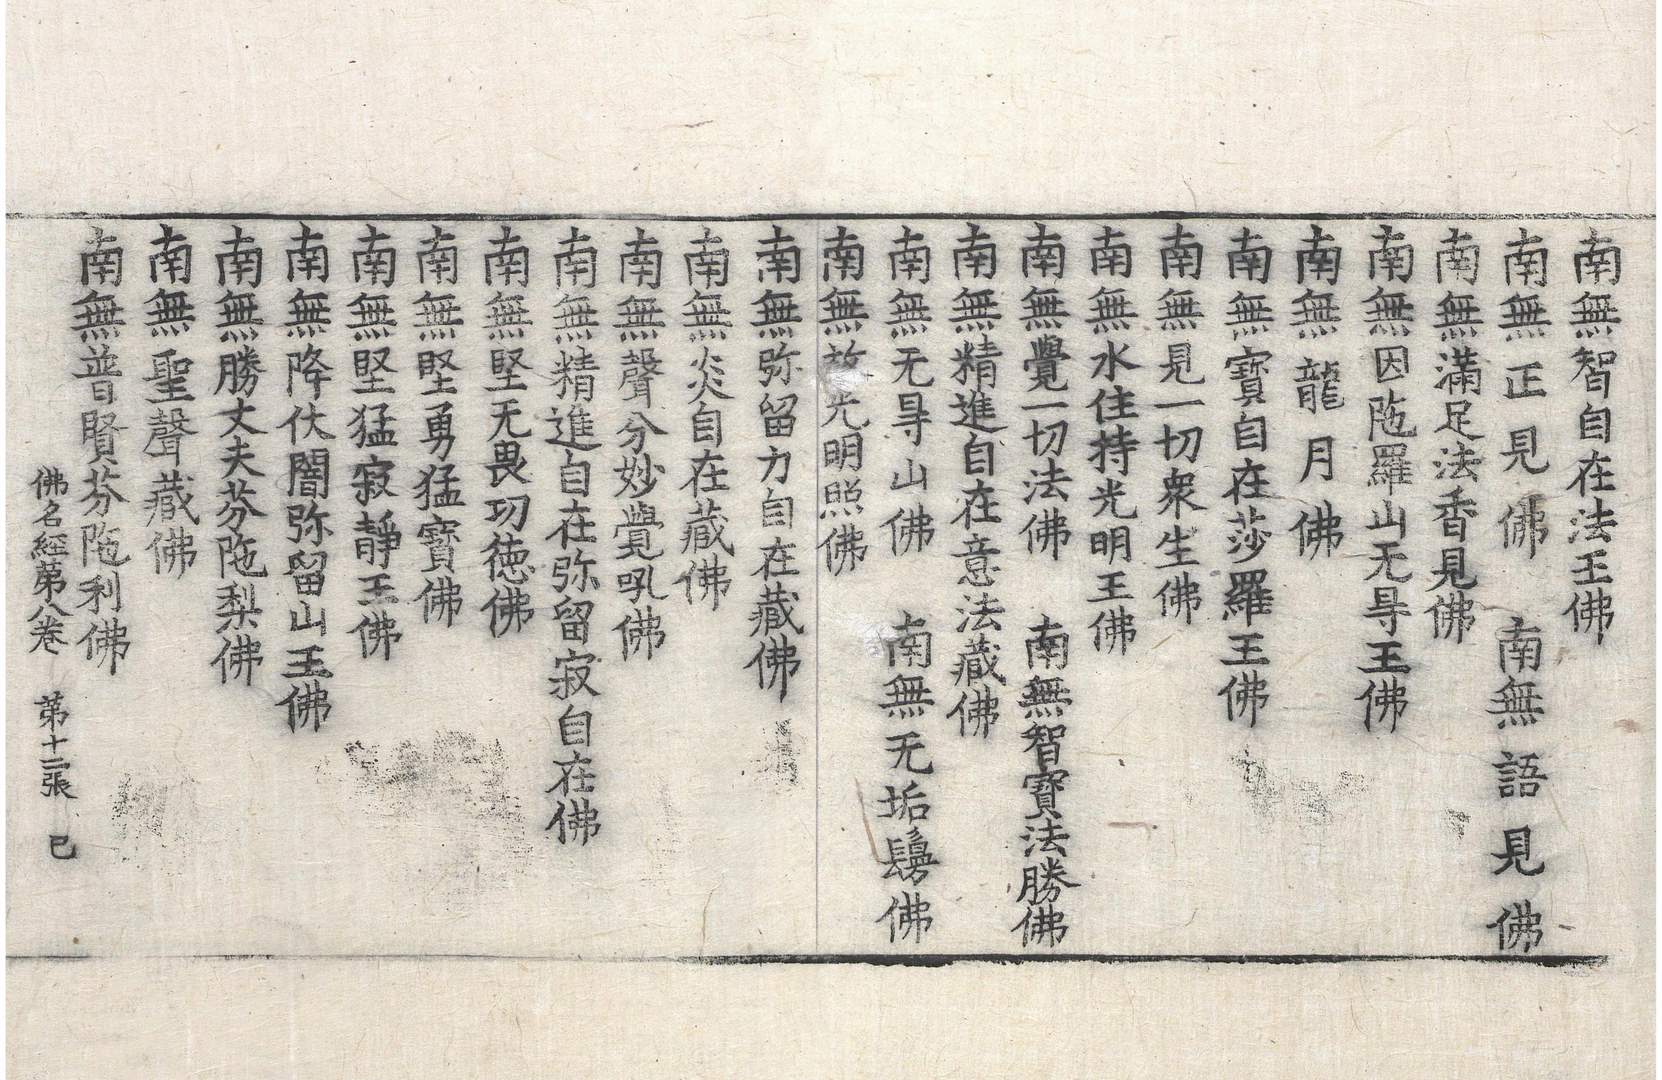 南無智自在法王佛
南無正見佛　南無語見佛
南無滿足法香見佛
南無因陁羅山无㝵王佛
南無龍月佛
南無寶自在莎羅王佛
南無見一切衆生佛
南無水住持光明王佛
南無覺一切法佛　南無智寶法勝佛
南無精進自在意法藏佛
南無无㝵山佛　南無无垢鬘佛
南無放光明照佛
南無弥留力自在藏佛
南無炎自在藏佛
南無聲分妙覺吼佛
南無精進自在弥留寂自在佛
南無堅无畏功德佛
南無堅勇猛寶佛
南無堅猛寂靜王佛
南無降伏闇弥留山王佛
南無勝丈夫芬陁梨佛
南無聖聲藏佛
南無普賢芬陁利佛
佛名經第八卷　第十二張　巳